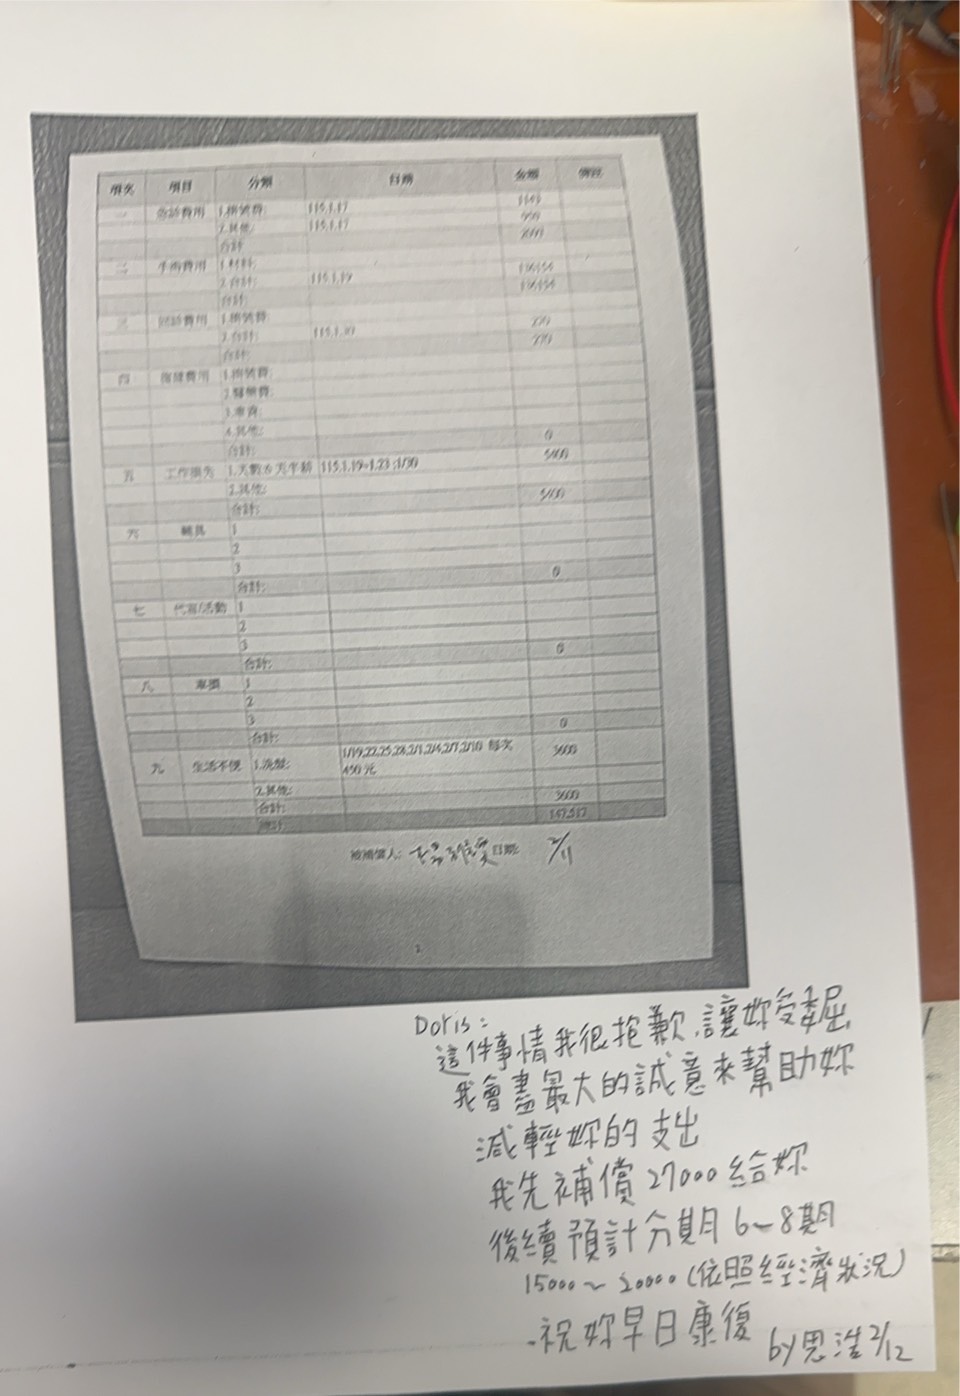 項次 項目 分類 日期 金額 備註
一 急診費用 1.掛號費: 115.1.17
2.其他: 115.1.17
合計
二 手術費用 1.材料:
2.合計: 115.1.19
合計:
三 回診費用 1.掛號費:
2.合計: 115.1.30
合計:
四 復健費用 1.掛號費:
2.醫藥費:
3.車資:
4.其他:
合計: 0
五 工作損失 1.天數 115.1.19~1.23 ;1/30 5400
2.其他:
合計: 5400
六 輔具 1
2
3
合計: 0
七 代言/活動 1
2
3
合計: 0
八 車損 1
2
3
合計: 0
九 生活不便 1.洗髮: 1/19,22,25,28,2/1,2/4,2/7,2/10 每次 3600
450元
2.其他:
合計: 3600
總計 147,517
被補償人: 日期: 2/11
Doris:
這件事情我很抱歉,讓妳受委屈
我會盡最大的誠意來幫助妳
減輕妳的支出
我先補償27000給妳
後續預計分期6~8期
15000~20000(依照經濟狀況)
祝妳早日康復
by思浩2/12